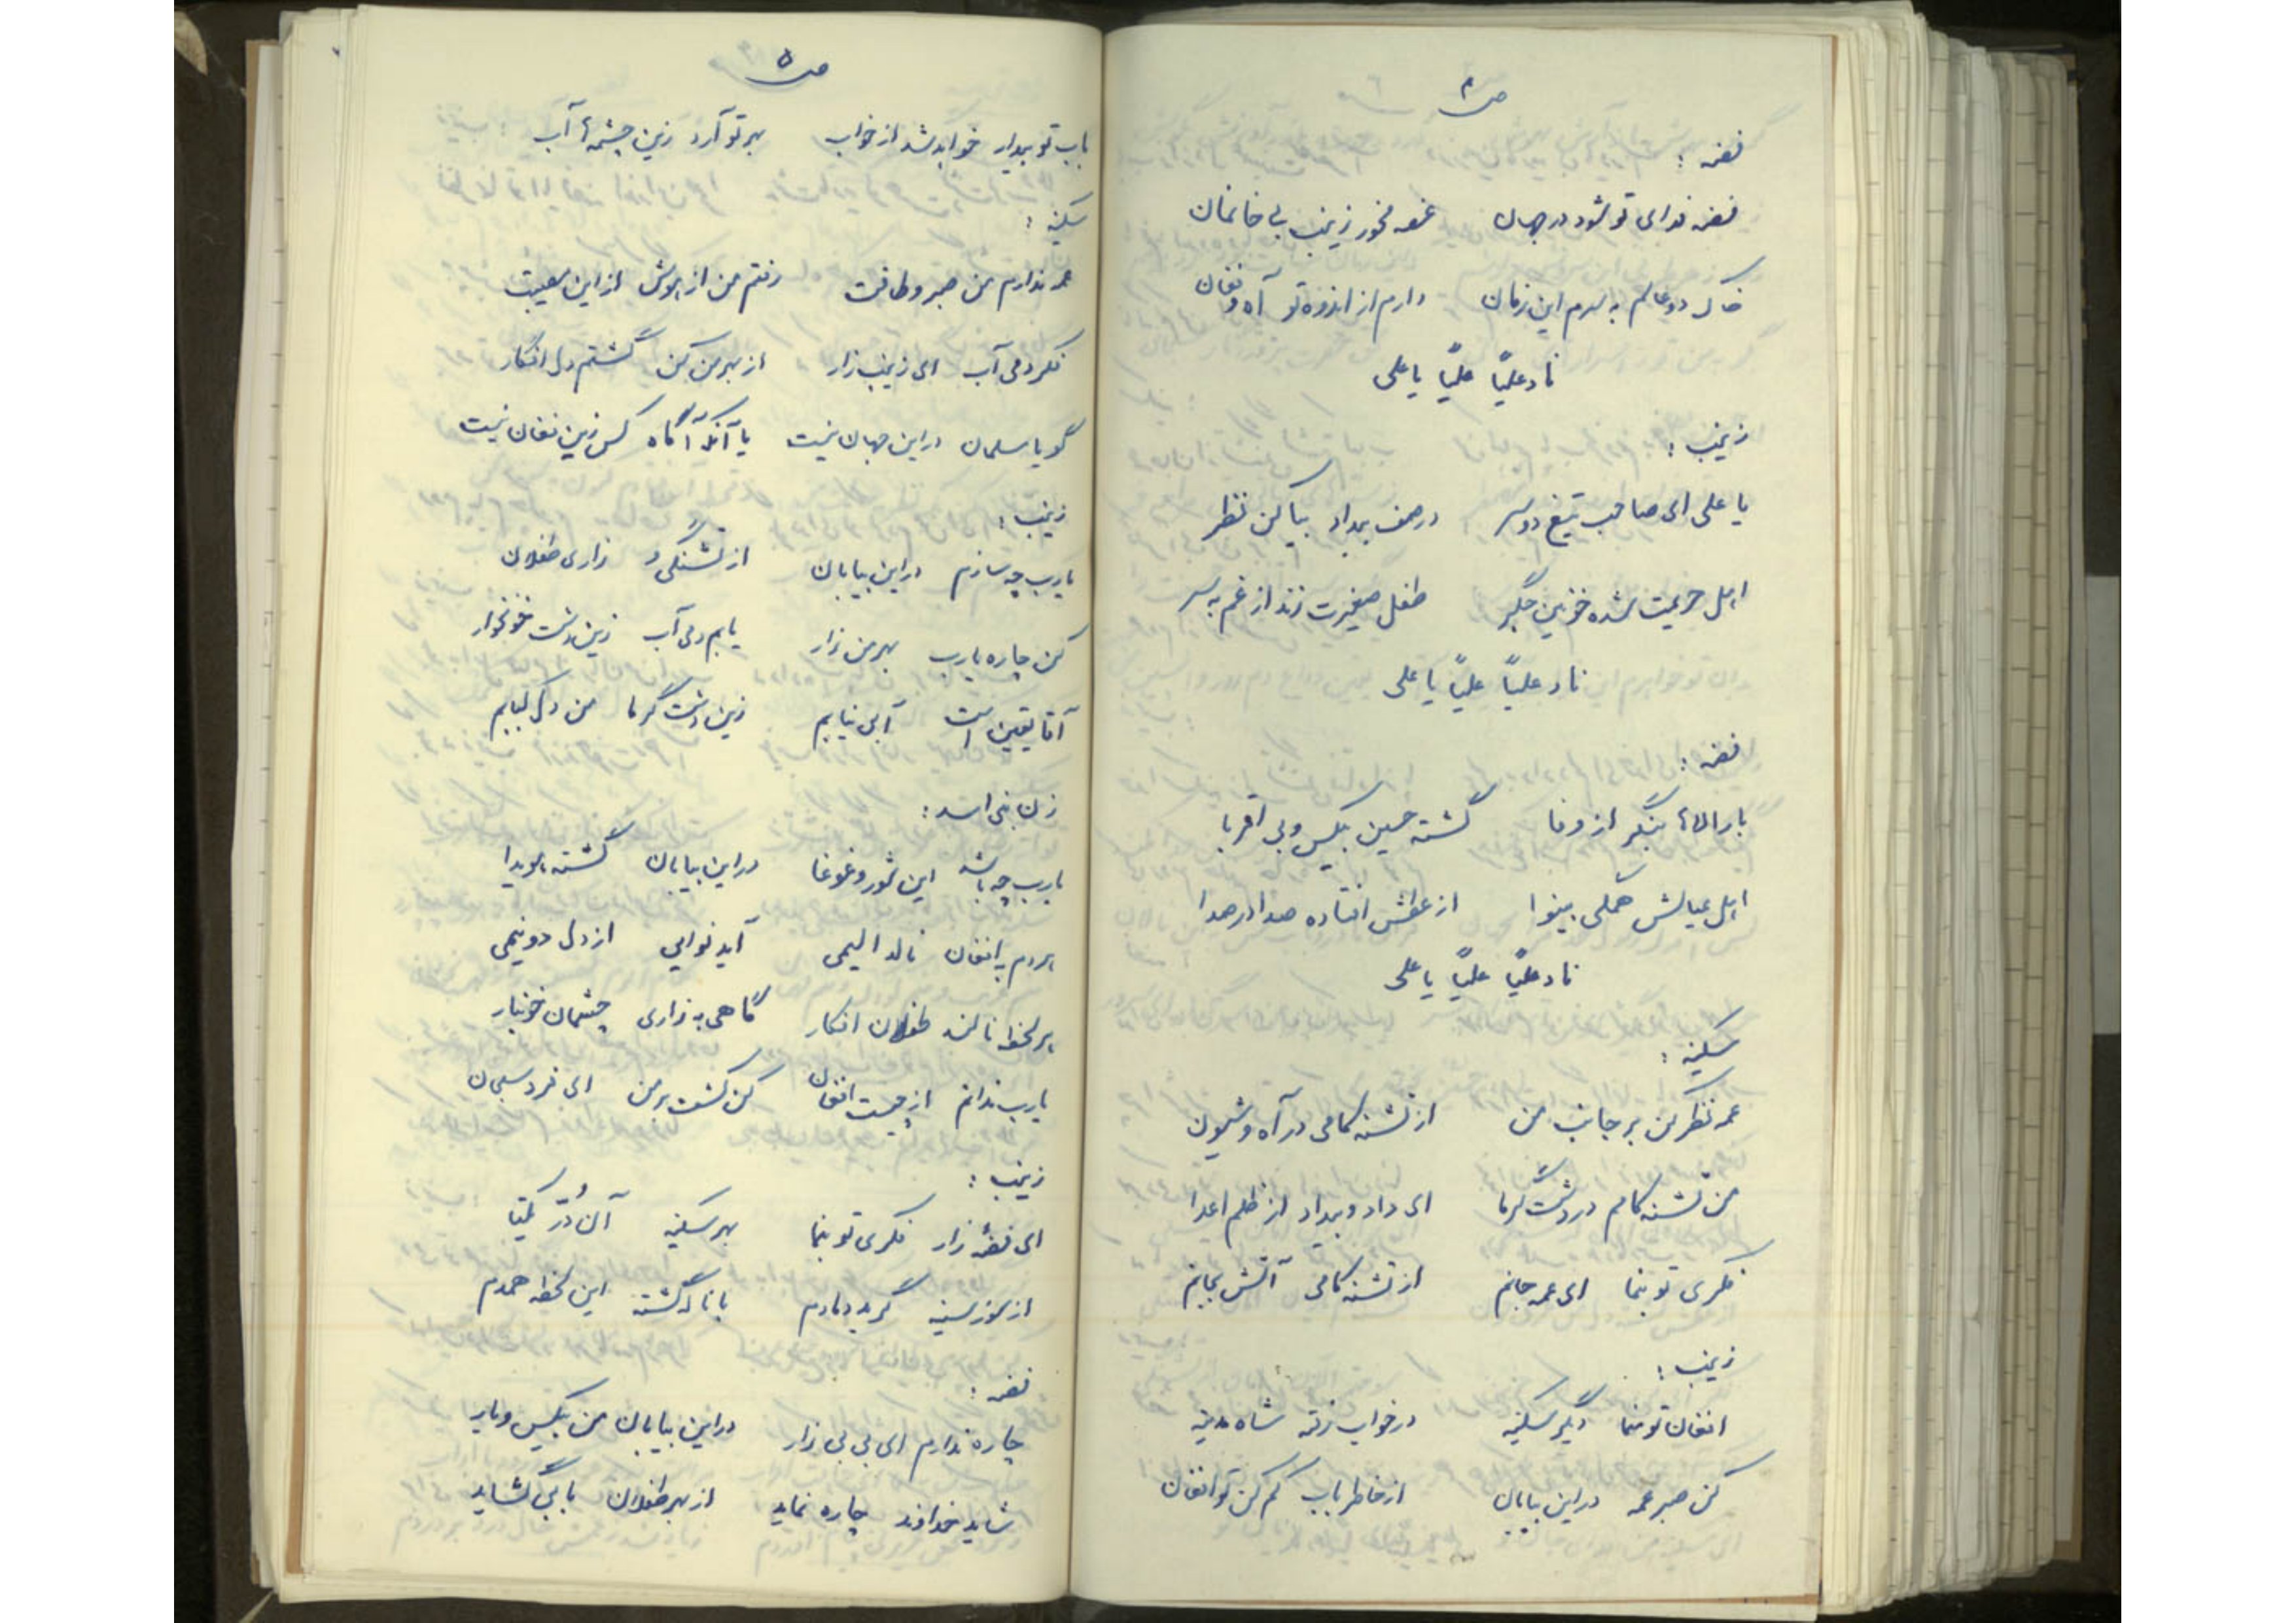 ص ۴
فضه :
فضه فدای تو شود در جهان غصه مخور زینب بی خانمان
خاک دو عالم به سرم این زمان دارم از اندوه تو آه و فغان
ناد علیاً علیاً یا علی
زینب :
یا علی ای صاحب تیغ دو سر در صف بیداد بیا کن نظر
اهل حریمت شده خونین جگر طفل صغیرت زند از غم به سر
ناد علیاً علیاً یا علی
فضه :
بار الها بنگر از وفا گشته حسین بیکس و بی اقربا
اهل عیالش همگی بینوا از عطش افتاده صدا در صدا
ناد علیاً علیاً یا علی
سکینه :
عمه نظر کن بر جانب من از تشنه کامی در آه و شیون
من تشنه کامم در دشت گرما ای داد و بیداد از ظلم اعدا
فکری تو بنما ای عمه جانم از تشنه کامی آتش بجانم
زینب :
افغان تو منما دیگر سکینه در خواب رفته شاه مدینه
کن صبر عمه در این بیابان از خاطر باب کم کن تو افغان
ص ۵
باب تو بیدار خواهد شد از خواب بهر تو آرد زین چشمه آب
سکینه :
عمه ندارم من صبر و طاقت رفتم من از هوش از این مصیبت
فکر دمی آب ای زینب زار از بهر من کن گشتم دل افکار
گویا مسلمان در این جهان نیست یا آنکه آگاه کس زین فغان نیست
زینب :
یارب چه سازم در این بیابان از تشنگی و زاری طفلان
کن چاره یارب بهر من زار یابم دمی آب زین دشت خونخوار
آقا یقین است آبی نیابم زین دشت گرما من دل کبابم
زن بنی اسد :
یارب چه باشد این شور و غوغا در این بیابان گشته هویدا
هردم به افغان نالد الیمی آید نوایی از دل دو نیمی
هر لحظه نالند طفلان افکار گاهی به زاری چشمان خونبار
یارب ندانم از چیست افغان کن کشف بر من ای فرد سبحان
زینب :
ای فضه زار فکری تو بنما بهر سکینه آن دُر یکتا
از سوز سینه گرید دمادم با ناله گشته این لحظه همدم
فضه :
چاره ندارم ای بی بی زار در این بیابان من بیکس و یار
شاید خداوند چاره نماید از بهر طفلان بابی گشاید